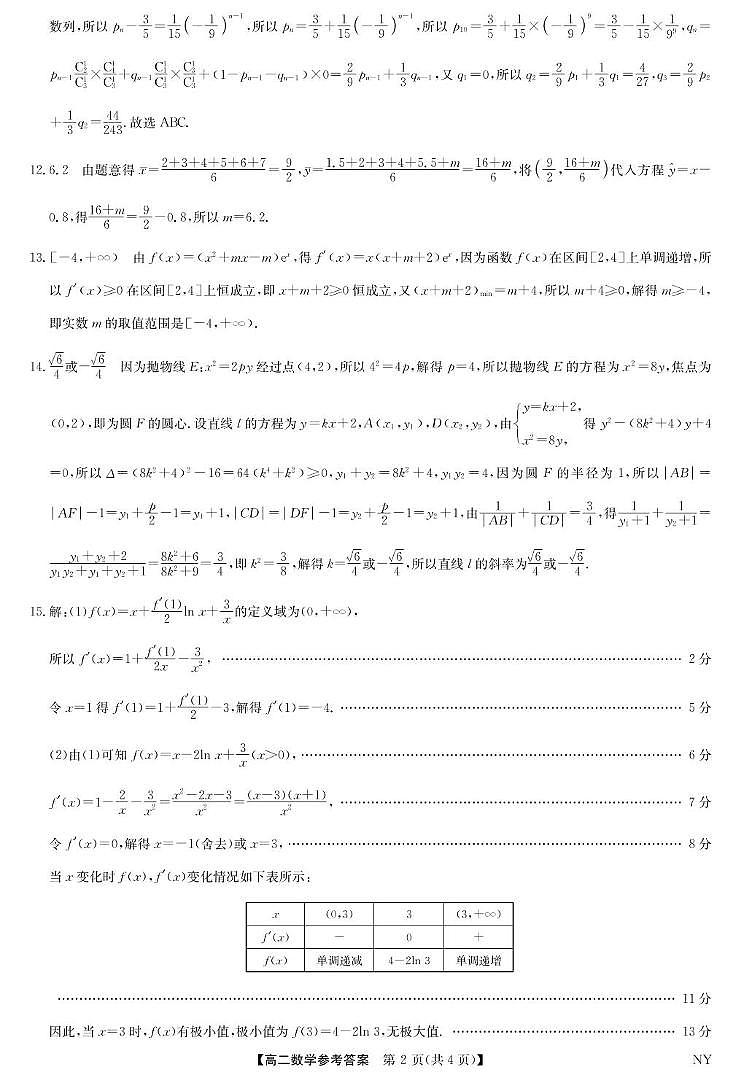 数列,所以 pₙ−3/5=1/15(−1/9)ⁿ⁻¹,所以 pₙ=3/5+1/15(−1/9)ⁿ⁻¹,所以 p₁₀=3/5+1/15×(−1/9)⁹=3/5−1/15×1/9⁹,qₙ=
pₙ₋₁C₂¹/C₃¹×C₁¹/C₃¹+qₙ₋₁C₃¹/C₃¹×C₁¹/C₃¹+(1−pₙ₋₁−qₙ₋₁)×0=2/9pₙ₋₁+1/3qₙ₋₁,又 q₁=0,所以 q₂=2/9p₁+1/3q₁=4/27,q₃=2/9p₂
+1/3q₂=44/243.故选 ABC.
12.6.2 由题意得 x̄=(2+3+4+5+6+7)/6=9/2,ȳ=(1.5+2+3+4+5.5+m)/6=(16+m)/6,将(9/2,(16+m)/6)代入方程 ŷ=x−
0.8,得(16+m)/6=9/2−0.8,所以 m=6.2.
13.[−4,+∞) 由 f(x)=(x²+mx−m)eˣ,得 f′(x)=x(x+m+2)eˣ,因为函数 f(x)在区间[2,4]上单调递增,所
以 f′(x)≥0 在区间[2,4]上恒成立,即 x+m+2≥0 恒成立,又(x+m+2)ₘᵢₙ=m+4,所以 m+4≥0,解得 m≥−4,
即实数 m 的取值范围是[−4,+∞).
14.√6/4或−√6/4 因为抛物线 E:x²=2py 经过点(4,2),所以 4²=4p,解得 p=4,所以抛物线 E 的方程为 x²=8y,焦点为
(0,2),即为圆 F 的圆心.设直线 l 的方程为 y=kx+2,A(x₁,y₁),D(x₂,y₂),由{y=kx+2, x²=8y, 得 y²−(8k²+4)y+4
=0,所以 Δ=(8k²+4)²−16=64(k⁴+k²)≥0,y₁+y₂=8k²+4,y₁y₂=4,因为圆 F 的半径为 1,所以|AB|=
|AF|−1=y₁+p/2−1=y₁+1,|CD|=|DF|−1=y₂+p/2−1=y₂+1,由1/|AB|+1/|CD|=3/4,得1/(y₁+1)+1/(y₂+1)=
(y₁+y₂+2)/(y₁y₂+y₁+y₂+1)=(8k²+6)/(8k²+9)=3/4,即 k²=3/8,解得 k=√6/4或−√6/4,所以直线 l 的斜率为√6/4或−√6/4.
15.解:(1)f(x)=x+f′(1)/2 ln x+3/x的定义域为(0,+∞),
所以 f′(x)=1+f′(1)/2x−3/x², …… 2 分
令 x=1 得 f′(1)=1+f′(1)/2−3,解得 f′(1)=−4. …… 5 分
(2)由(1)可知 f(x)=x−2ln x+3/x(x>0), …… 6 分
f′(x)=1−2/x−3/x²=(x²−2x−3)/x²=(x−3)(x+1)/x², …… 7 分
令 f′(x)=0,解得 x=−1(舍去)或 x=3, …… 8 分
当 x 变化时 f(x),f′(x)变化情况如下表所示:
x (0,3) 3 (3,+∞)
f′(x) − 0 +
f(x) 单调递减 4−2ln 3 单调递增
…… 11 分
因此,当 x=3 时,f(x)有极小值,极小值为 f(3)=4−2ln 3,无极大值. …… 13 分
【高二数学参考答案 第 2 页(共 4 页)】 NY